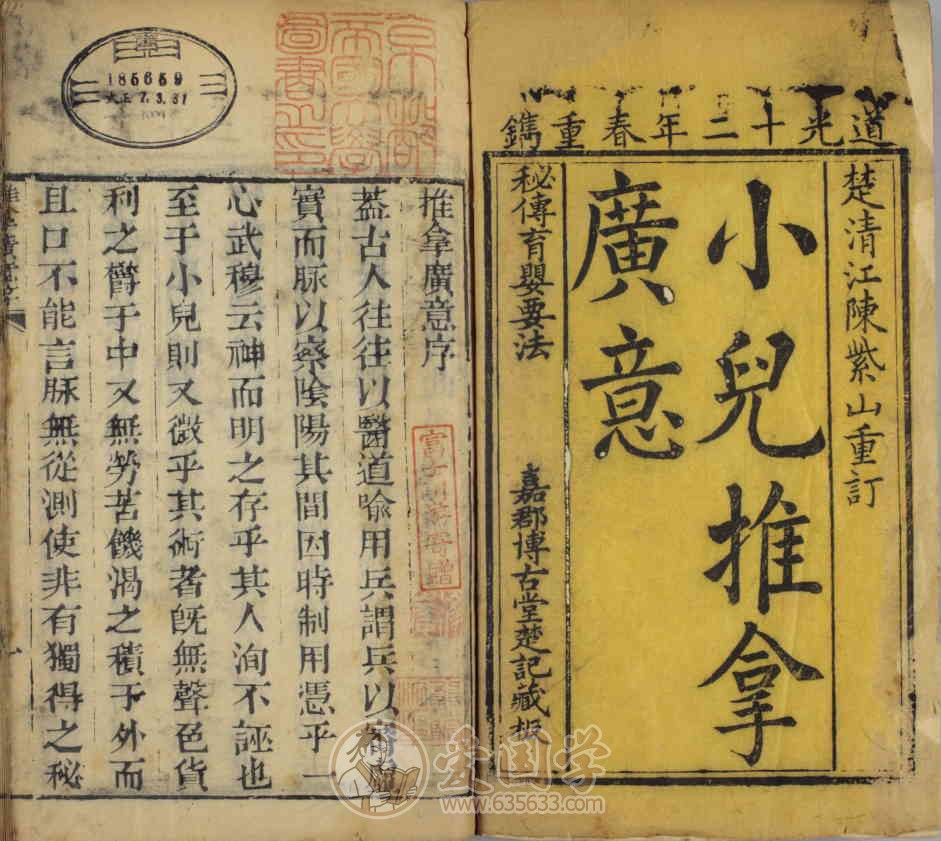 道光十二年春重鐫
楚清江陳紫山重訂
小兒推拿
廣意
秘傳育嬰要法
嘉郡博古堂楚記藏板
185659
大正 7.3.31
推拿廣意序
蓋古人往往以醫道喻用兵謂兵以察虛
實而脉以察陰陽其間因時制用憑乎一
心武穆云神而明之存乎其人洵不誣也
至于小兒則又微乎其術者旣無聲色貨
利之欝于中又無勞苦饑渴之積于外而
且口不能言脉無從測使非有獨得之秘
爱国学
www.635633.com